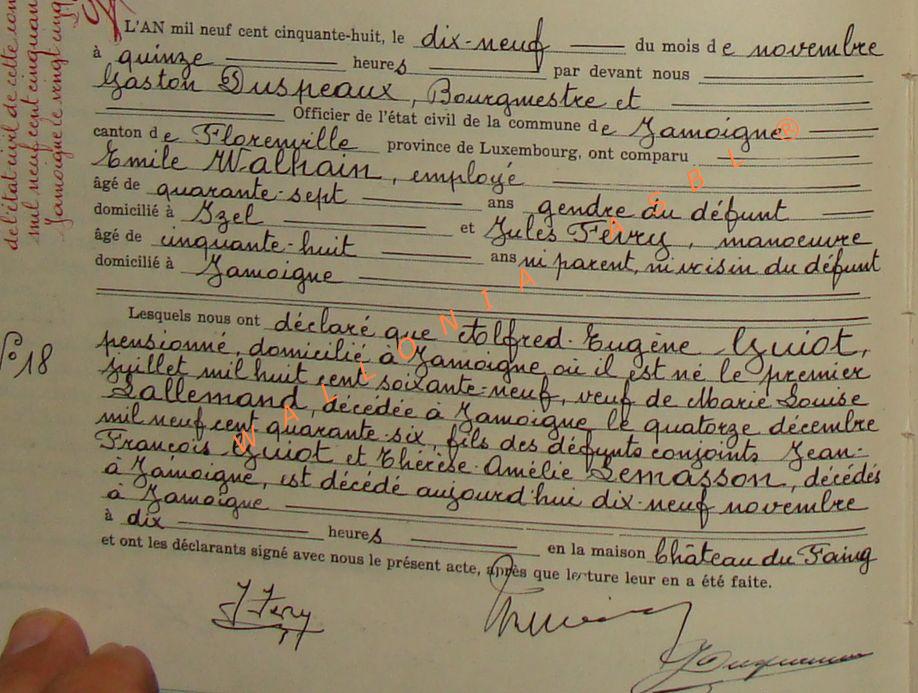 L'AN mil neuf cent cinquante-huit, le dix-neuf du mois de novembre
à quinze heures par devant nous
Gaston Duspeaux, Bourgmestre et
Officier de l'état civil de la commune de Jamoigne
canton de Florenville province de Luxembourg, ont comparu
Emile Walhain, employé
âgé de quarante-sept ans gendre du défunt
domicilié à Izel et Jules Févry, manoeuvre
âgé de cinquante-huit ans ni parent, ni voisin du défunt
domicilié à Jamoigne
Lesquels nous ont déclaré que Alfred-Eugène Guiot,
pensionné, domicilié à Jamoigne, où il est né le premier
juillet mil huit cent soixante-neuf, veuf de Marie Louise
Lallemand, décédée à Jamoigne le quatorze décembre
mil neuf cent quarante-six, fils des défunts conjoints Jean-
François Guiot et Thérèse-Amélie Lemasson, décédés
à Jamoigne, est décédé aujourd'hui dix-neuf novembre
à Jamoigne
à dix heures en la maison Château du Faing
et ont les déclarants signé avec nous le présent acte, après que lecture leur en a été faite.
N° 18
de l'état civil de cette
mil neuf cent cinquan
Jamoigne le vingt cinq
WALLONIA ASBL ®